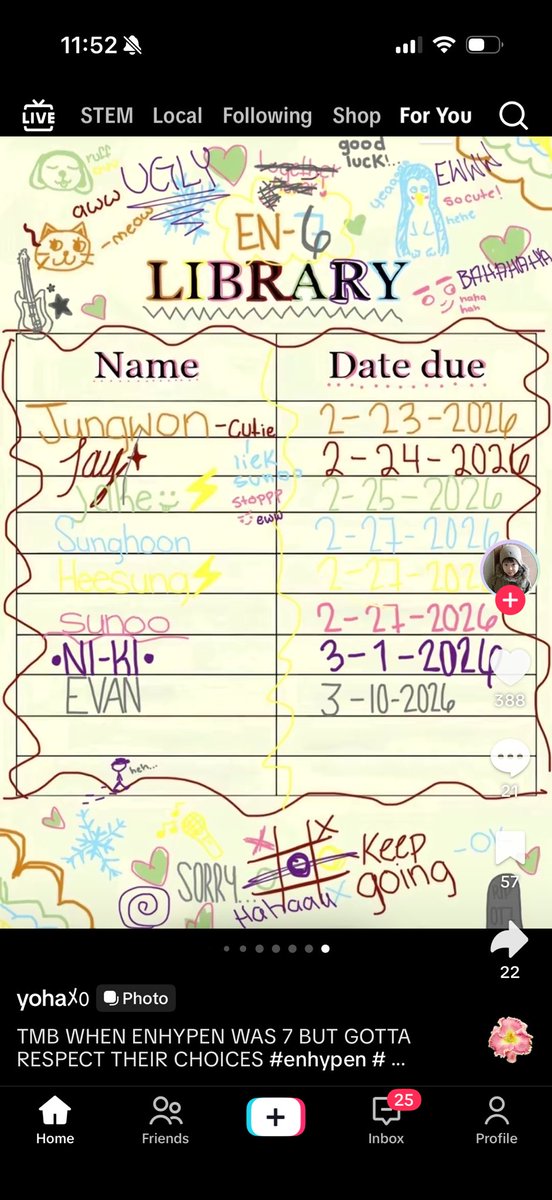 11:52
LIVE STEM Local Following Shop For You
good luck!..
ruff
aww
UGLY
together
yeaa
EWWW
aww
so cute!
hehe
-meow
EN-6
BAHAHAHA
haha
hah
LIBRARY
Name Date due
Jungwon -cutie 2-23-2026
Jay 2-24-2026
liek
sunoo
Jake 2-25-2026
stoppp
eww
Sunghoon 2-27-2026
Heesung 2-27-202
Sunoo 2-27-2026
•NI-KI• 3-1-2026
EVAN 3-10-2026
388
heh...
21
SORRY...
Keep
going
HaHaaa
57
RIP
22
yohaﾒ0 Photo
TMB WHEN ENHYPEN WAS 7 BUT GOTTA
RESPECT THEIR CHOICES #enhypen # ...
25
Home Friends Inbox Profile